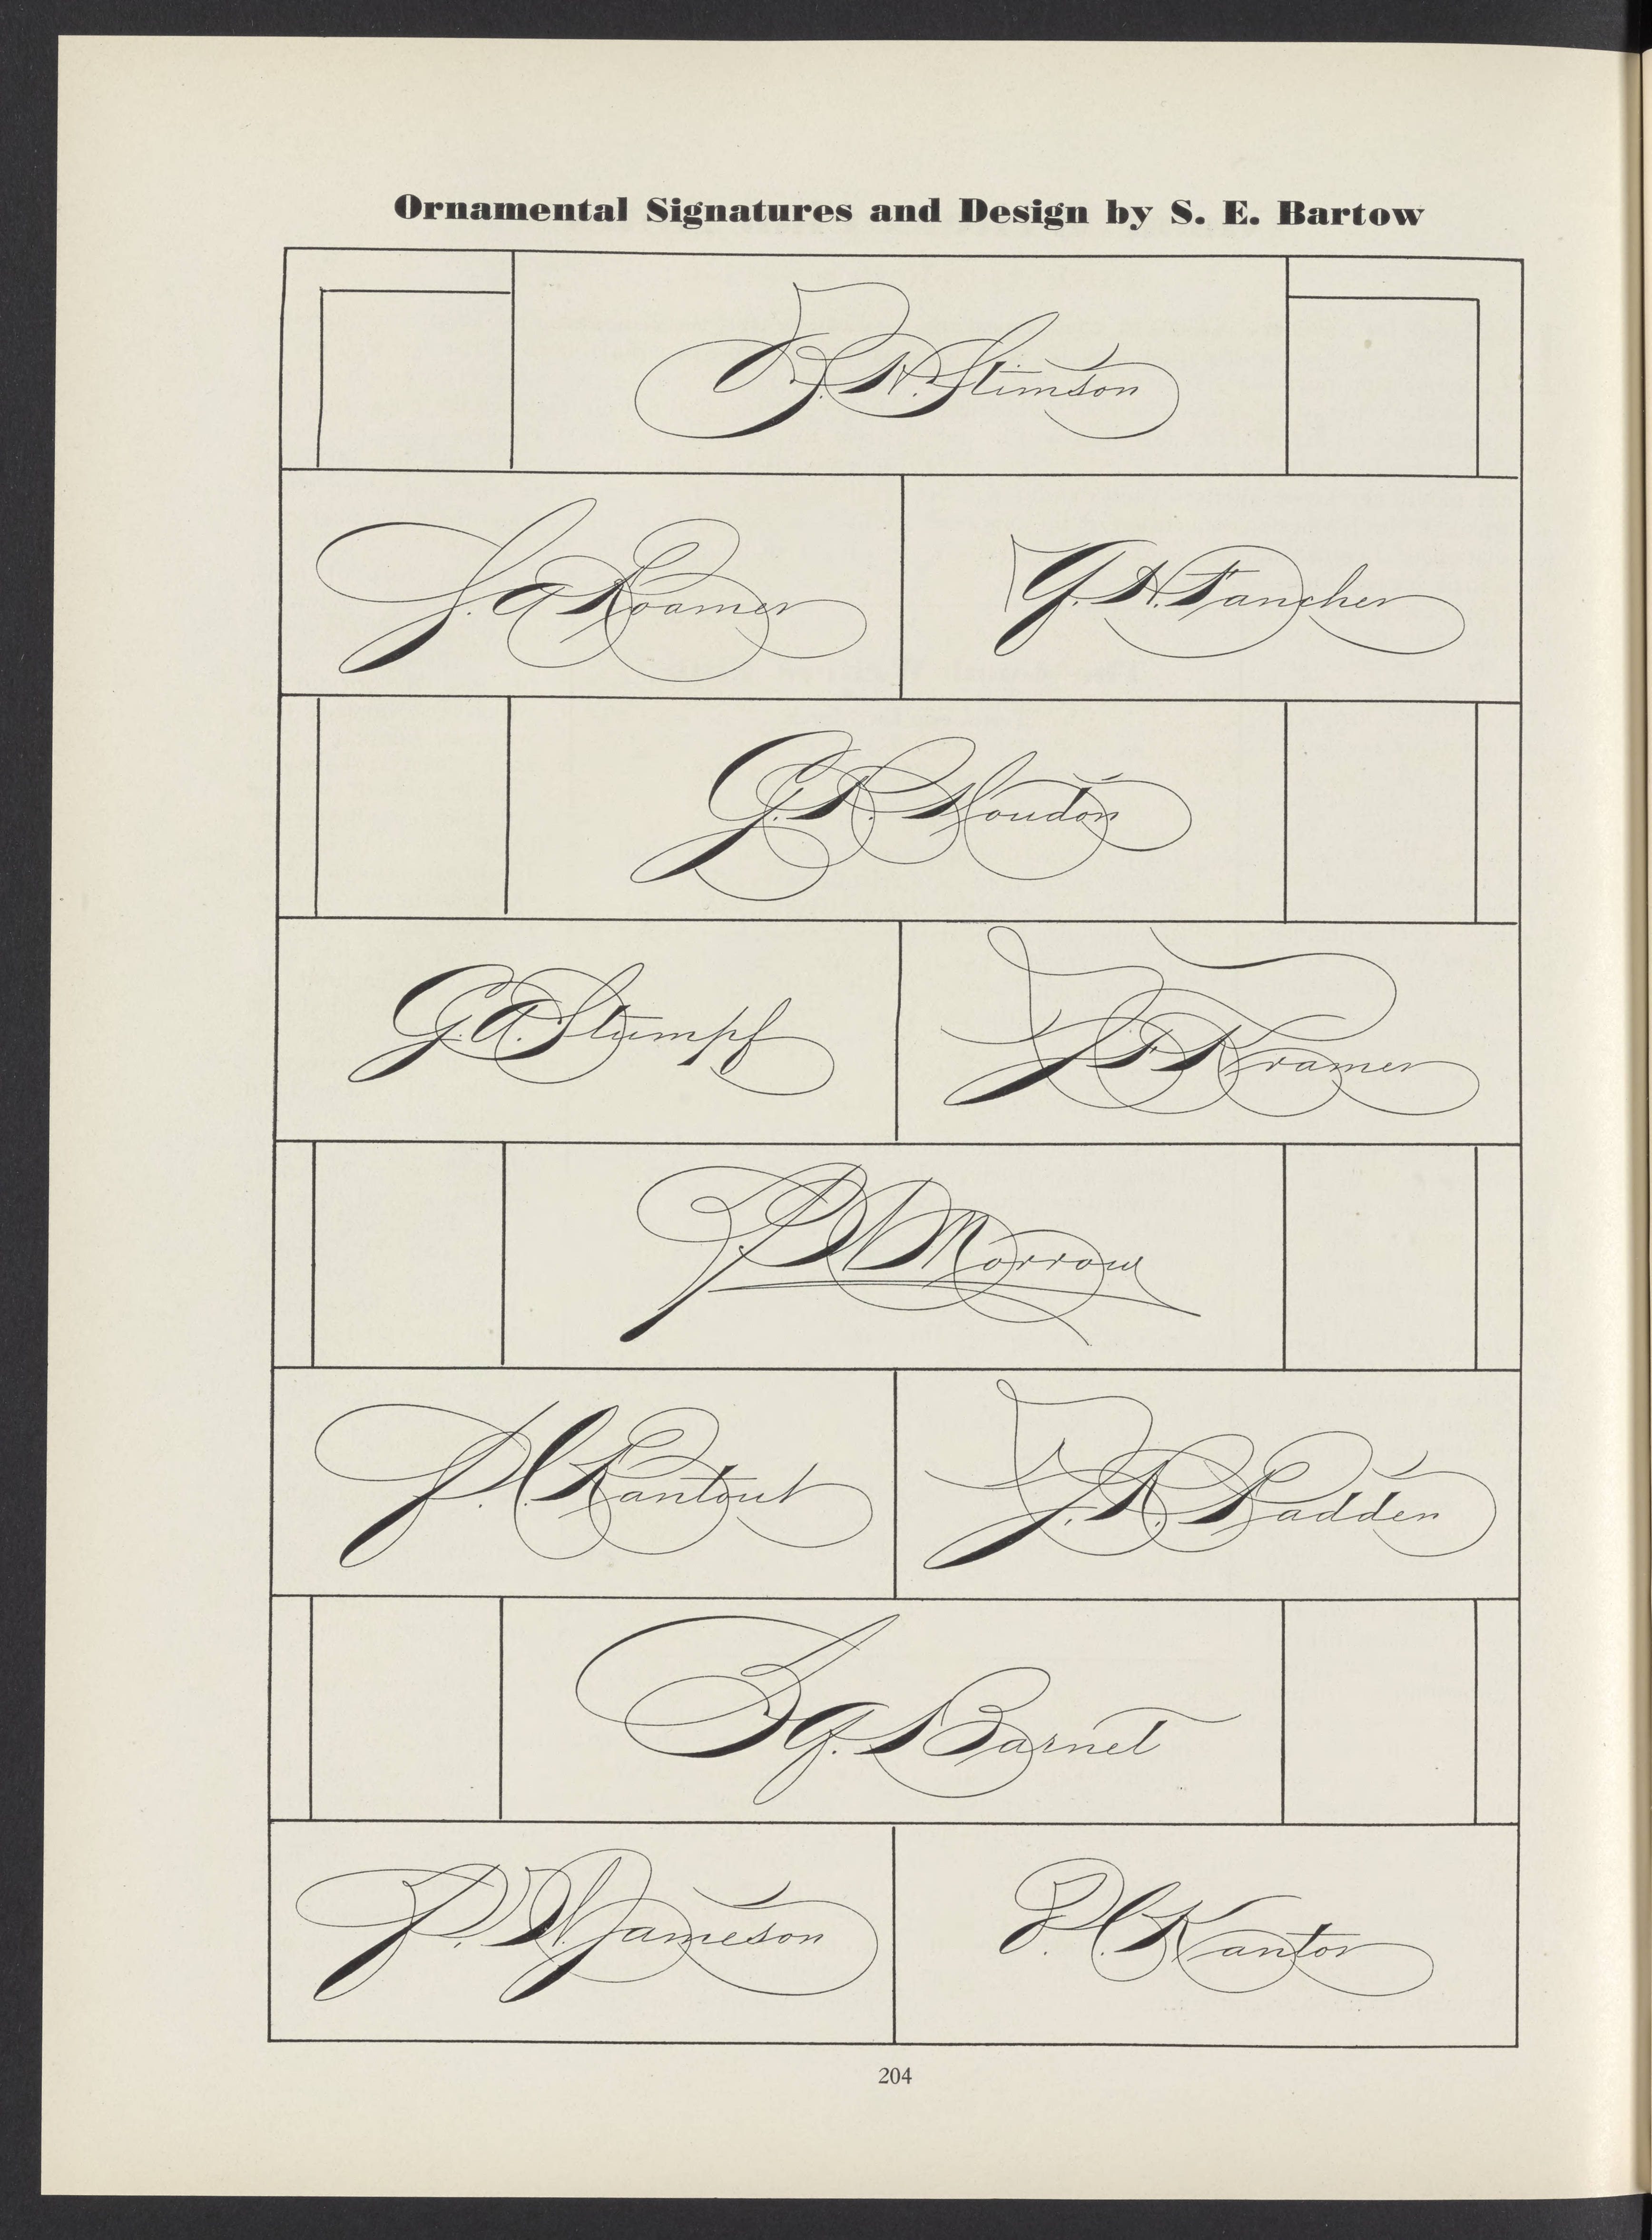 Ornamental Signatures and Design by S. E. Bartow
N. Stimson
G. H. Fancher
G. R.
G. A. Stumpf
J. F. Kramer
Morrow
P. C. Rantout
J. R. Radden
B. G. Barnet
P. W. Jameson
P. C. Kantor
204